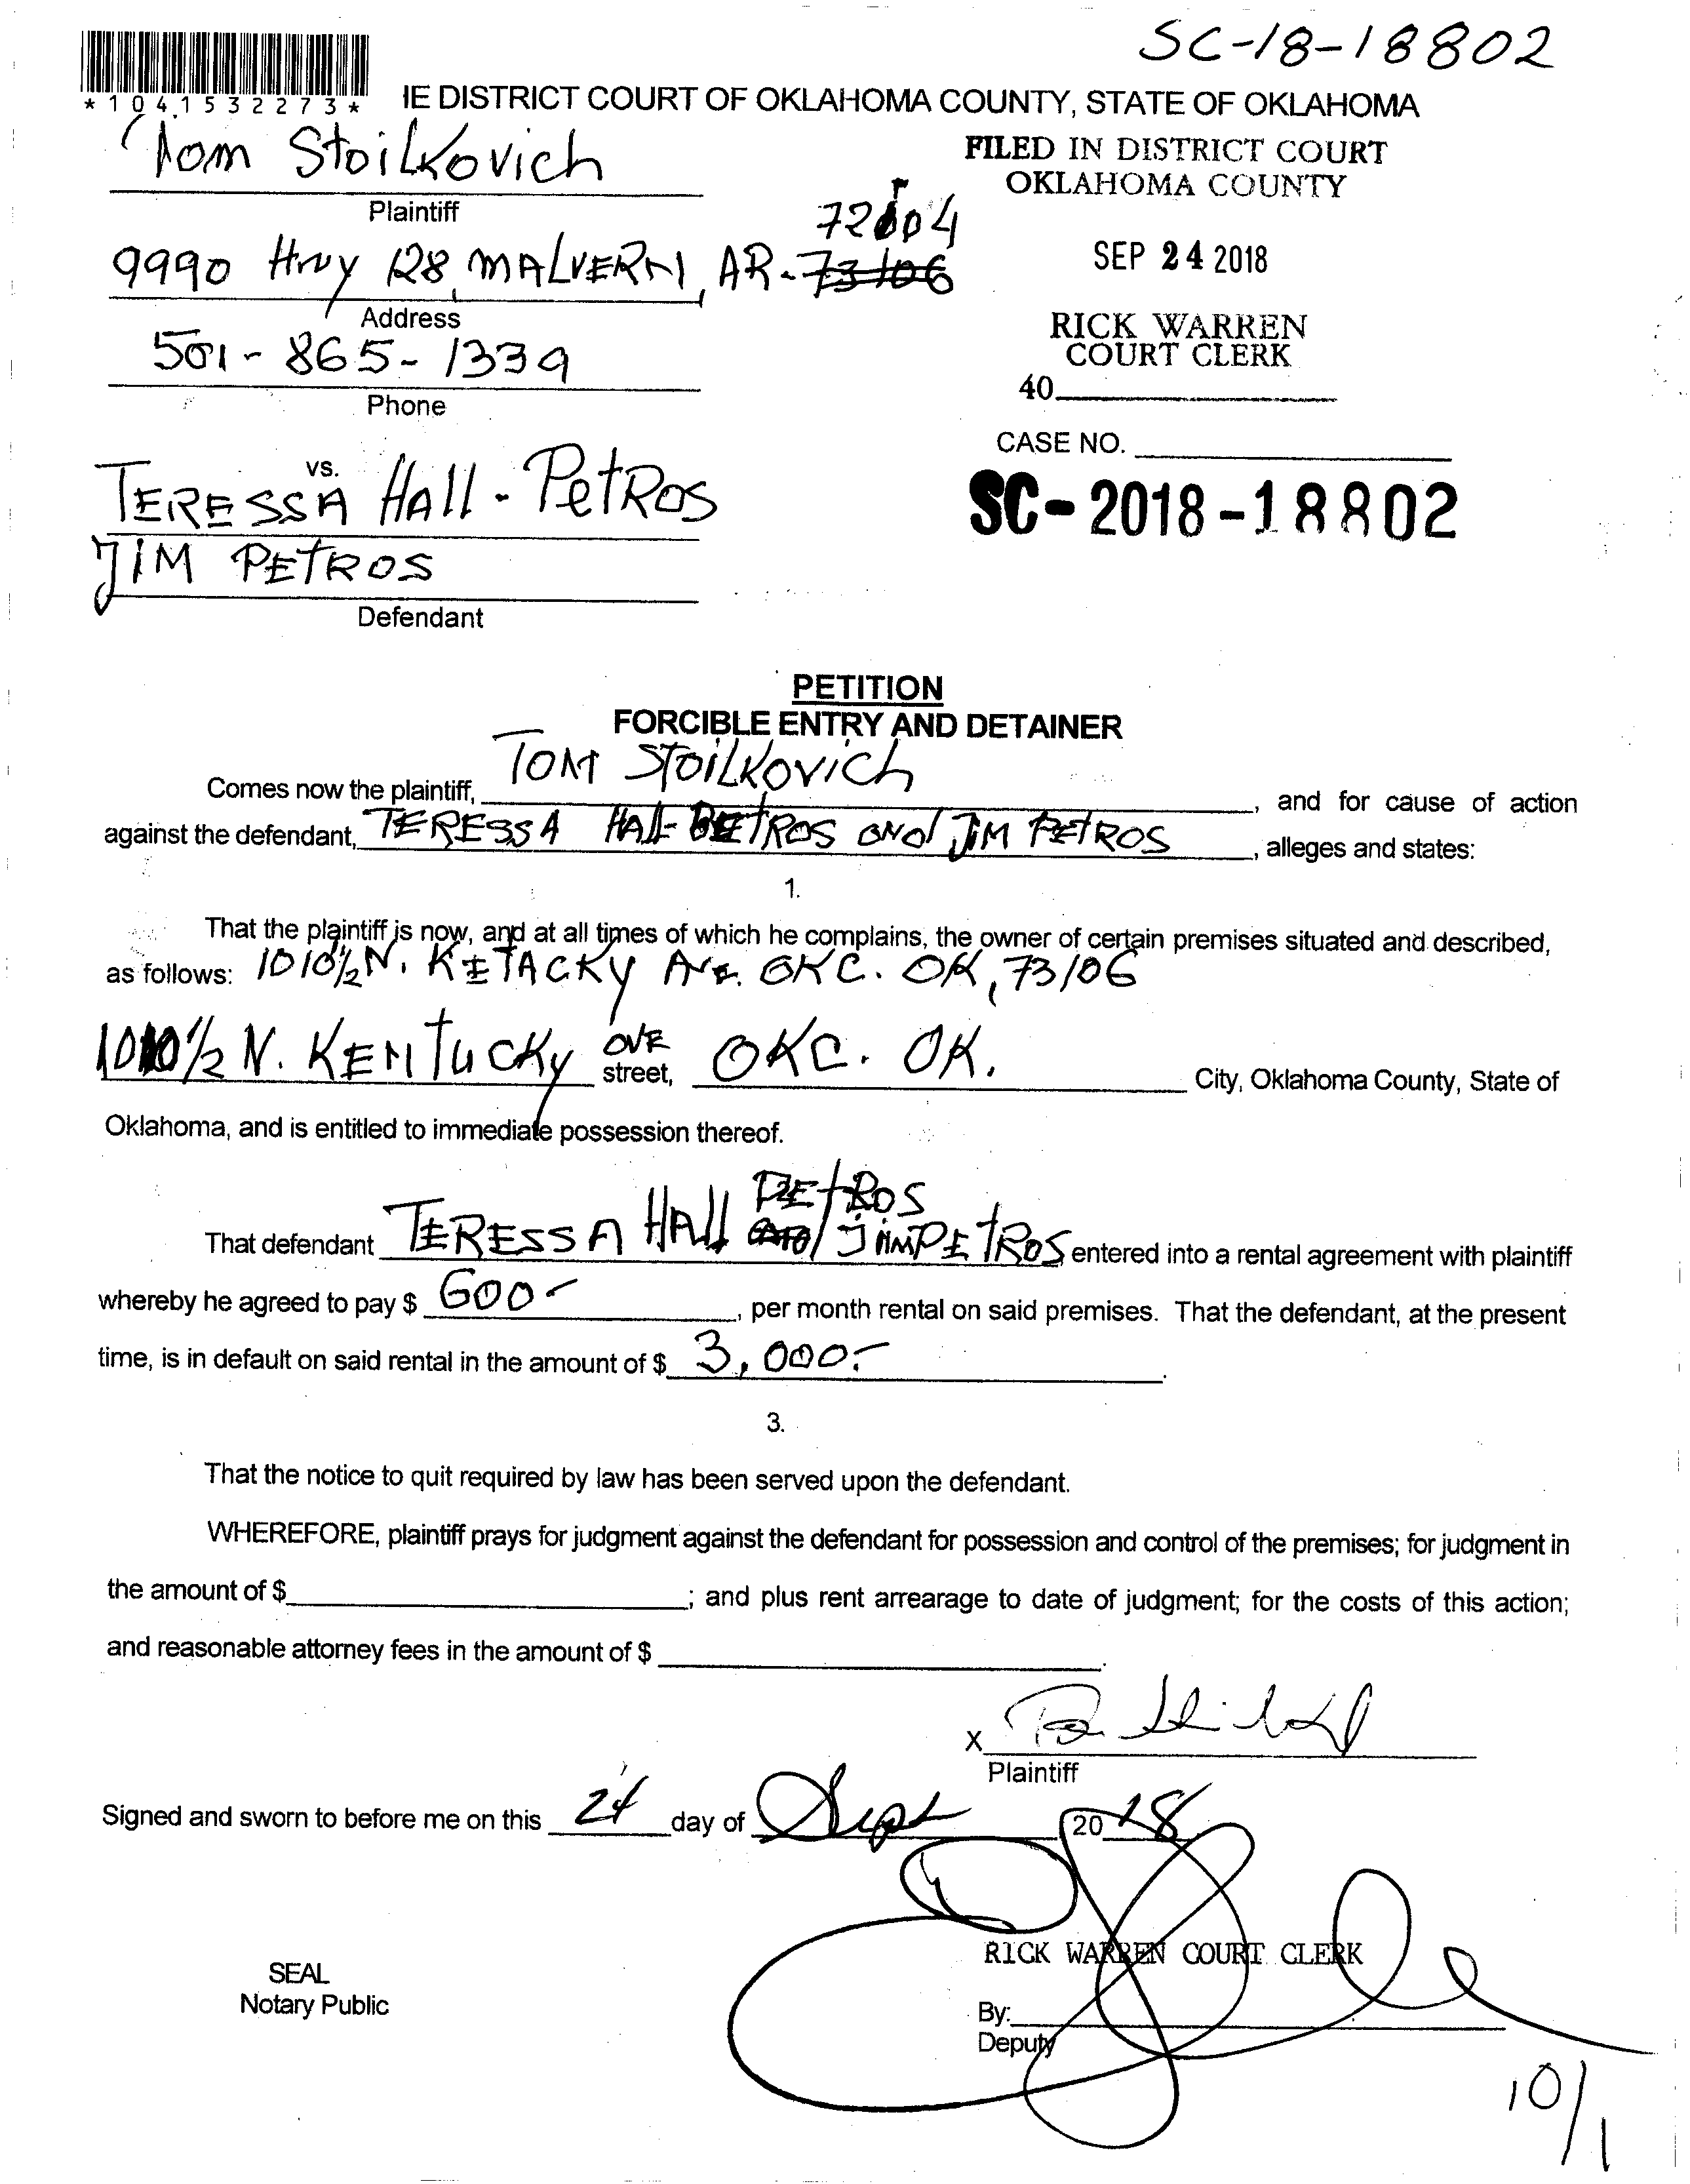 SC-18-18802
*1041532273*
IE DISTRICT COURT OF OKLAHOMA COUNTY, STATE OF OKLAHOMA
Tom Stoilkovich
FILED IN DISTRICT COURT
OKLAHOMA COUNTY
Plaintiff
9990 Hwy 128, MALVERN, AR - 73106 72104
SEP 24 2018
Address
RICK WARREN
COURT CLERK
501-865-1339
40
Phone
CASE NO.
vs.
TERESSA HAll-PetROS
SC-2018-18802
JIM PETROS
Defendant
PETITION
FORCIBLE ENTRY AND DETAINER
Comes now the plaintiff, TOM STOILKOVICH, and for cause of action
against the defendant, TERESSA HAll-PETROS and JIM PETROS, alleges and states:
1.
That the plaintiff is now, and at all times of which he complains, the owner of certain premises situated and described,
as follows: 1010½ N. KETACKY Ave. OKC. OK, 73106
1010½ N. KENTUCKY ave street, OKC. OK. City, Oklahoma County, State of
Oklahoma, and is entitled to immediate possession thereof.
That defendant TERESSA HAll PETROS JIM PETROS entered into a rental agreement with plaintiff
whereby he agreed to pay $ 600-, per month rental on said premises. That the defendant, at the present
time, is in default on said rental in the amount of $ 3,000.-.
3.
That the notice to quit required by law has been served upon the defendant.
WHEREFORE, plaintiff prays for judgment against the defendant for possession and control of the premises; for judgment in
the amount of $ ; and plus rent arrearage to date of judgment; for the costs of this action;
and reasonable attorney fees in the amount of $ .
X
Plaintiff
Signed and sworn to before me on this 24 day of Sept 2018
RICK WARREN COURT CLERK
SEAL
Notary Public
By:
Deputy
10/1